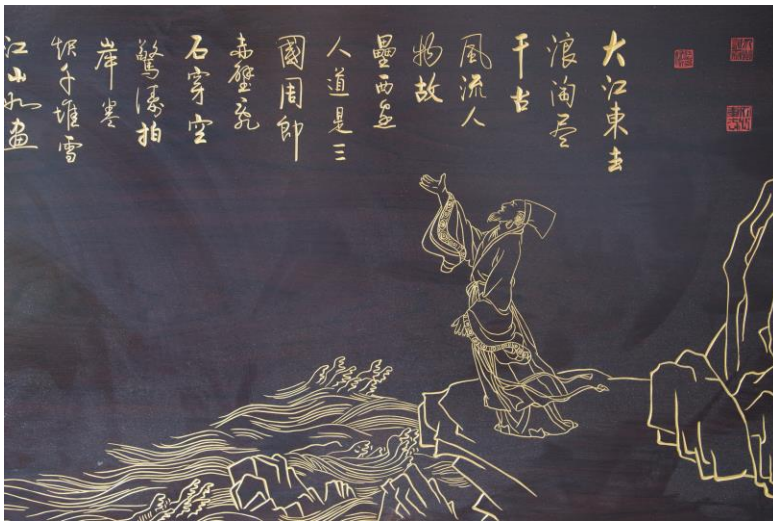 大江東去
浪淘尽
千古
風流人
物故
壘西边
人道是三
國周郎
赤壁乱
石穿空
驚濤拍
岸卷
起千堆雪
江山如画